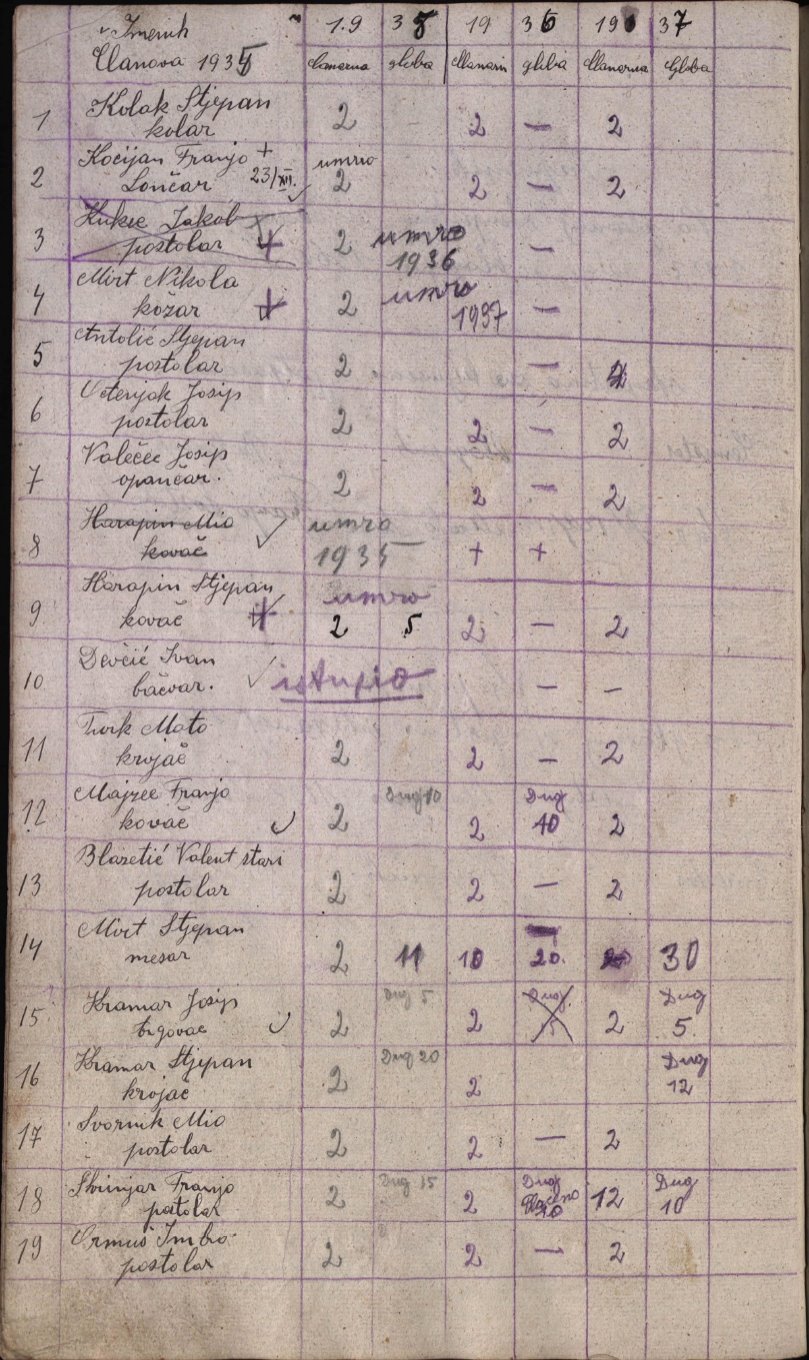 Imenik 19 35 19 36 19 37
Članova 1935 Članarina globa Članarin globa Članarina Globa
1 Kolak Stjepan
kolar 2 - 2 — 2
2 Kocijan Franjo + umrio
Lončar 23/XII. 2 2 — 2
3 Kukec Jakob
postolar + 2 umro —
1936
4 Mirt Nikola umro
kožar + 2 1937 —
5 Antolić Stjepan
postolar 2 —
6 Veterijak Josip
postolar 2 2 — 2
7 Valečec Josip
opančar. 2 2 — 2
8 Harapin Mio ✓ umro
kovač 1935 + +
9 Harapin Stjepan umro
kovač + 2 5 2 — 2
10 Devčić Ivan
bačvar. ✓ istupio — —
11 Turk Mato
krojač 2 2 — 2
12 Majzec Franjo Dug 10 Dug
kovač ✓ 2 2 10 2
13 Blazetić Valent stari
postolar 2 2 — 2
14 Mirt Stjepan
mesar 2 11 10 20. 30
15 Kramar Josip Dug 5 Dug Dug
trgovac ✓ 2 2 15 2 5.
16 Kramar Stjepan Dug 20 Dug
krojač 2 2 12
17 Svornik Mio
postolar 2 2 — 2
18 Skvinjar Franjo Dug 15 Dug Dug
postolar 2 2 Plaćeno 10 12 10
19 Ormuš Imbro
postolar 2 2 — 2